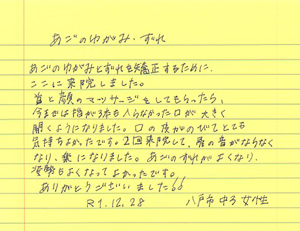 あごのゆがみ・ずれ
あごのゆがみとずれを矯正するために、
ここに来院しました。
首と顔のマッサージをしてもらったら、
今までは指が3本も入らなかった口が大きく
開くようになりました。口の皮がのびてとても
気持ちよかったです。2回来院して、顎の音がならなく
なり、楽になりました。あごのずれがよくなり、
姿勢もよくなってよかったです。
ありがとうございました!!
R1.12.28 八戸市 中3 女性